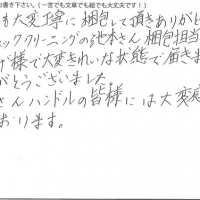 お書き下さい。(一言でも文章でも絵でも大丈夫です！)
も大変丁寧に梱包して頂きありが
ニッククリーニングの池本さん 梱包担当
げ様で大変きれいな状態で届きま
がとうございました
さんハンドルの皆様には大変感
おります。